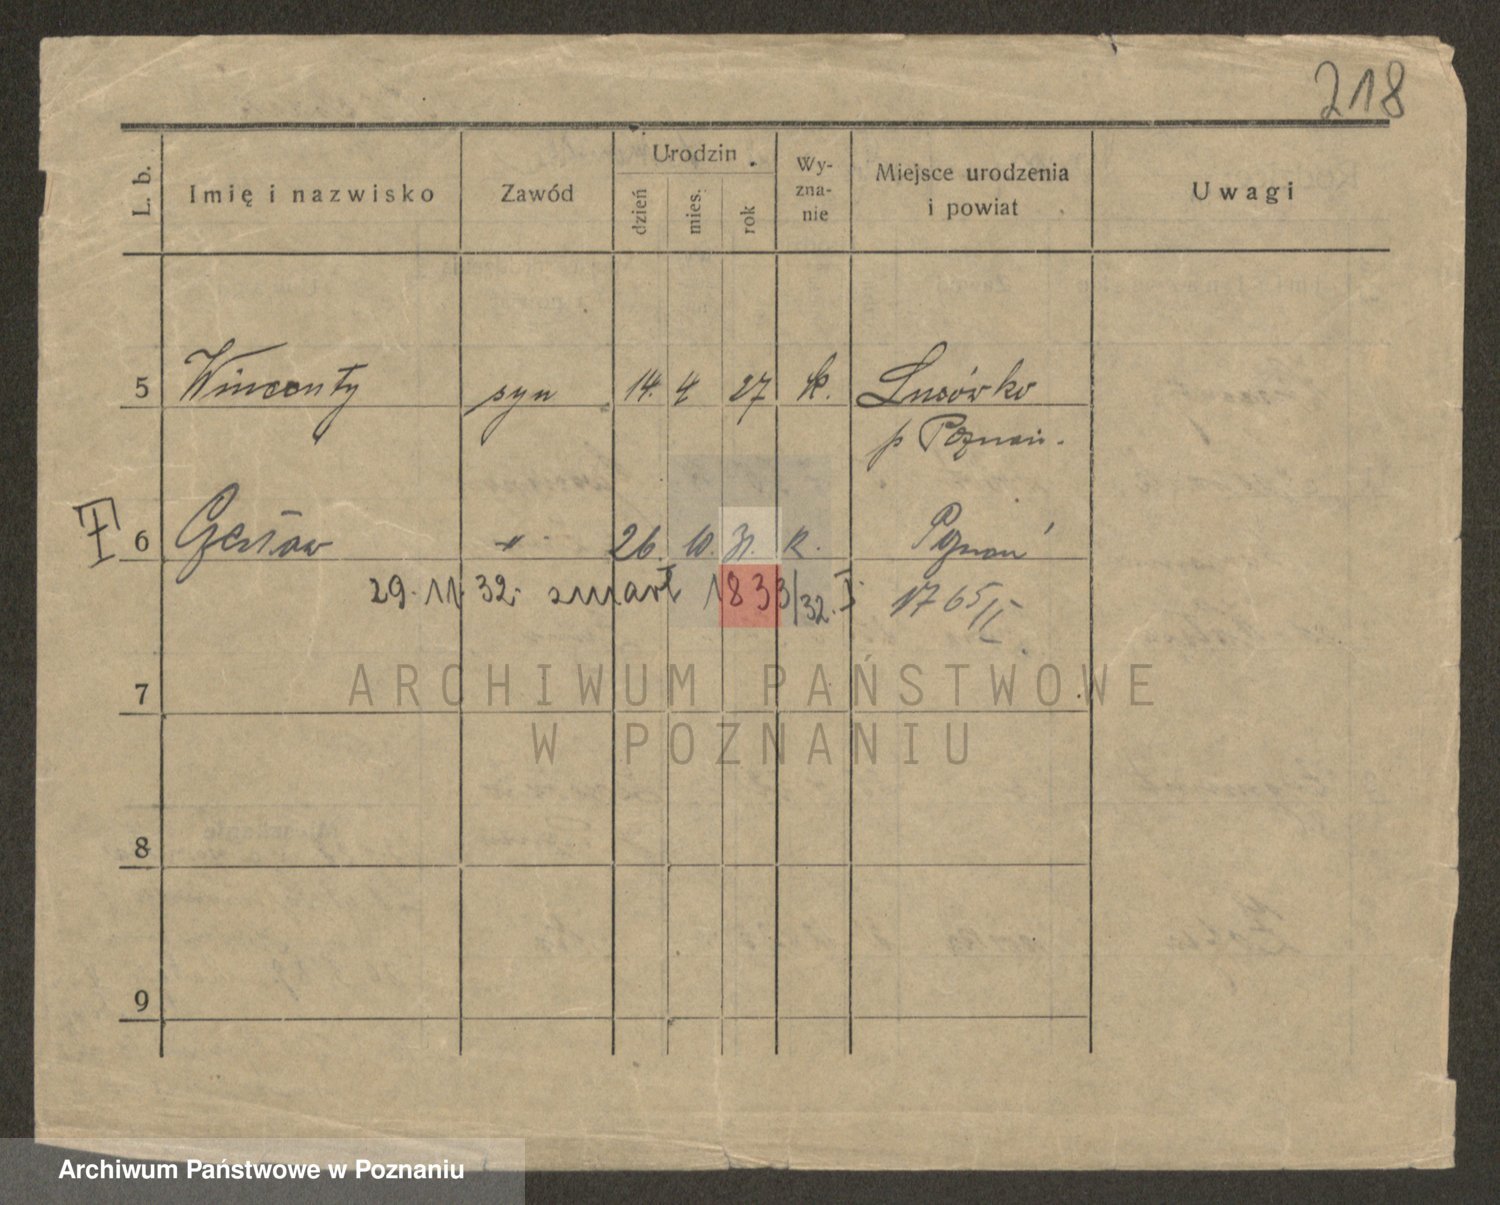 218
L. b. Imię i nazwisko Zawód Urodzin dzień mies. rok Wy-zna-nie Miejsce urodzenia i powiat Uwagi
5 Wincenty syn 14. 4 27 k. Lusówko
p Poznań.
6 Czesław " 26. 10. 31. k. Poznań
29. 11. 32. zmarł 1833/32. I. 1765/II
7
8
9
ARCHIWUM PAŃSTWOWE
W POZNANIU
Archiwum Państwowe w Poznaniu